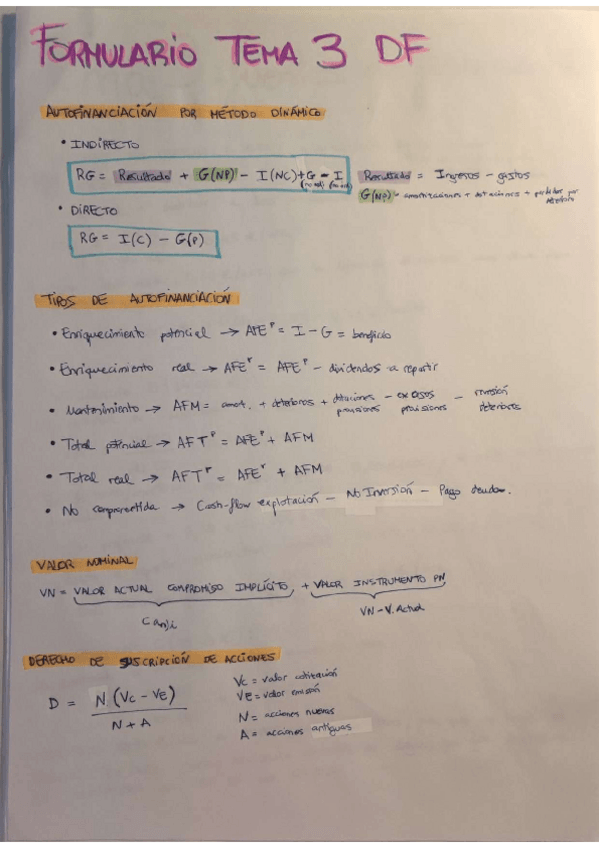 FORMULARIO TEMA 3 DF
AUTOFINANCIACIÓN POR MÉTODO DINÁMICO
• INDIRECTO
RG = Resultado + G(NP) - I(NC) + G - I
Resultado = Ingresos - gastos
G(NP) = amortizaciones + dotaciones + pérdidas por deterioro
• DIRECTO
RG = I(C) - G(P)
TIPOS DE AUTOFINANCIACIÓN
• Enriquecimiento potencial → AFEᵖ = I - G = beneficio
• Enriquecimiento real → AFEʳ = AFEᵖ - dividendos a repartir
• Mantenimiento → AFM = amort. + deterioros + dotaciones provisiones - excesos provisiones - reversión deterioros
• Total potencial → AFTᵖ = AFEᵖ + AFM
• Total real → AFTʳ = AFEʳ + AFM
• No comprometida → Cash-flow explotación - No Inversión - Pago deudas.
VALOR NOMINAL
VN = VALOR ACTUAL COMPROMISO IMPLÍCITO + VALOR INSTRUMENTO PN
C an┐i
VN - V. Actual
DERECHO DE SUSCRIPCIÓN DE ACCIONES
D = N (Vc - Ve)
N + A
Vc = valor cotización
Ve = valor emisión
N = acciones nuevas
A = acciones antiguas